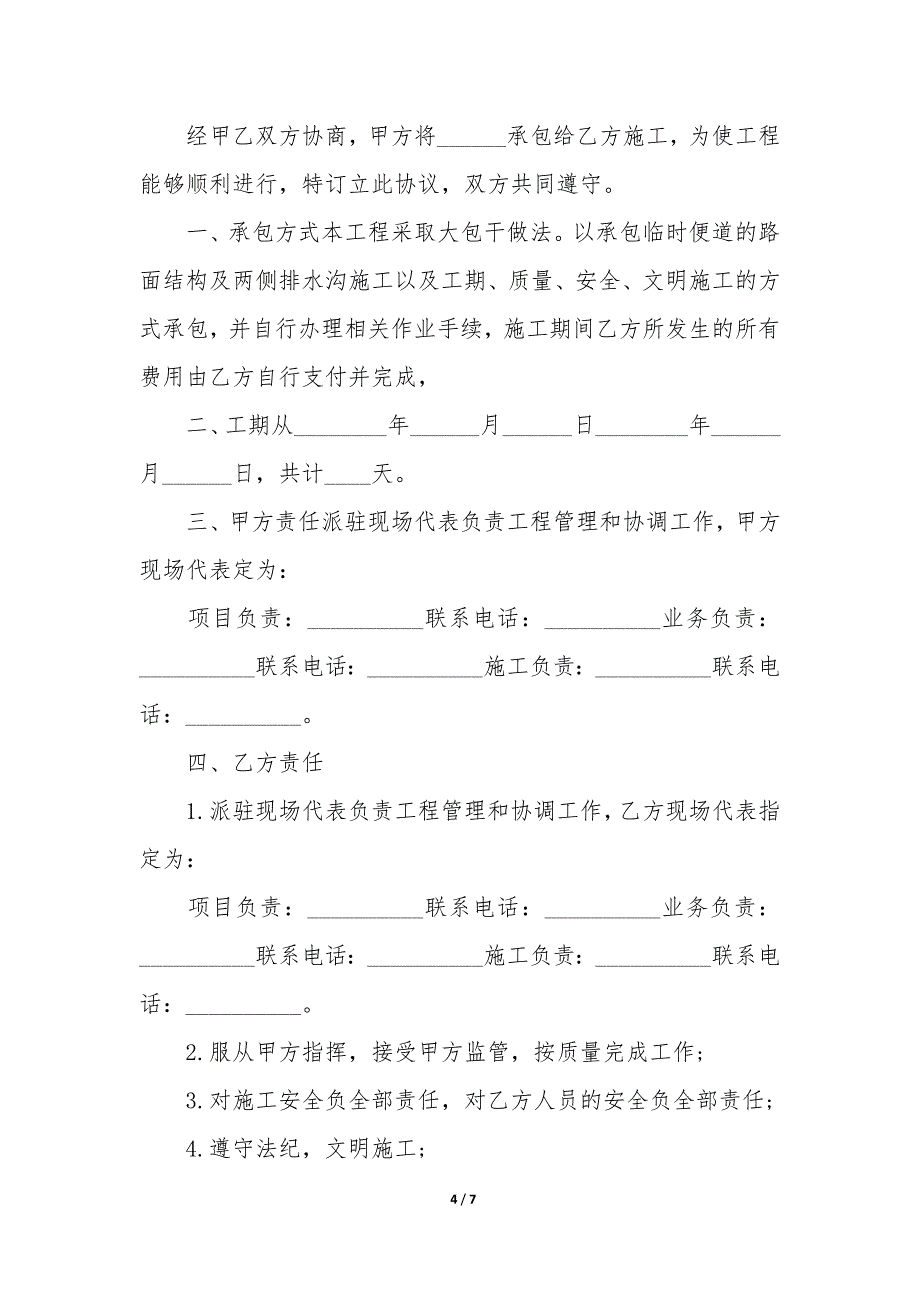 经甲乙双方协商，甲方将______承包给乙方施工，为使工程
能够顺利进行，特订立此协议，双方共同遵守。
一、承包方式本工程采取大包干做法。以承包临时便道的路
面结构及两侧排水沟施工以及工期、质量、安全、文明施工的方
式承包，并自行办理相关作业手续，施工期间乙方所发生的所有
费用由乙方自行支付并完成，
二、工期从________年______月______日________年______
月______日，共计____天。
三、甲方责任派驻现场代表负责工程管理和协调工作，甲方
现场代表定为：
项目负责：__________联系电话：__________业务负责：
__________联系电话：__________施工负责：__________联系电
话：__________。
四、乙方责任
1.派驻现场代表负责工程管理和协调工作，乙方现场代表指
定为：
项目负责：__________联系电话：__________业务负责：
__________联系电话：__________施工负责：__________联系电
话：__________。
2.服从甲方指挥，接受甲方监管，按质量完成工作;
3.对施工安全负全部责任，对乙方人员的安全负全部责任;
4.遵守法纪，文明施工;
4 / 7